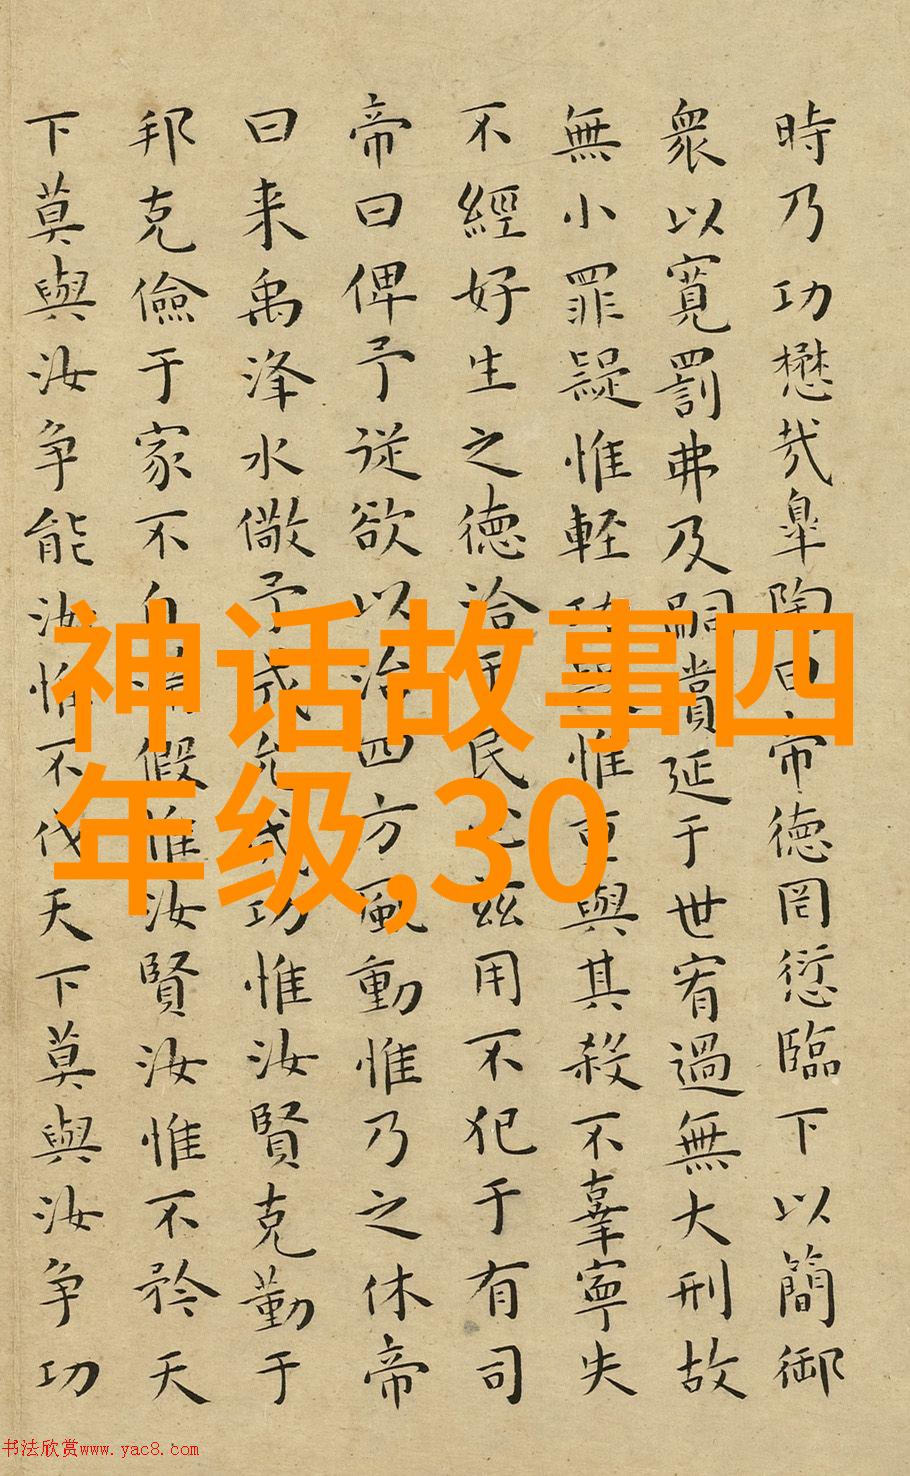 時乃功懋哉皐陶曰帝徳罔愆臨下以簡御
衆以寛罰弗及嗣賞延于世宥過無大刑故
無小罪疑惟軽惟重與其殺不辜寧失
不經好生之徳洽于民兹用不犯于有司
帝曰俾予従欲以治四方風動惟乃之休帝
曰来禹洚水儆予成允成功惟汝賢克勤于
邦克儉于家不自滿假惟汝賢汝惟不矜天
下莫與汝争能汝惟不伐天下莫與汝争功
神话故事四
年级,30
书法欣赏www.yac8.com